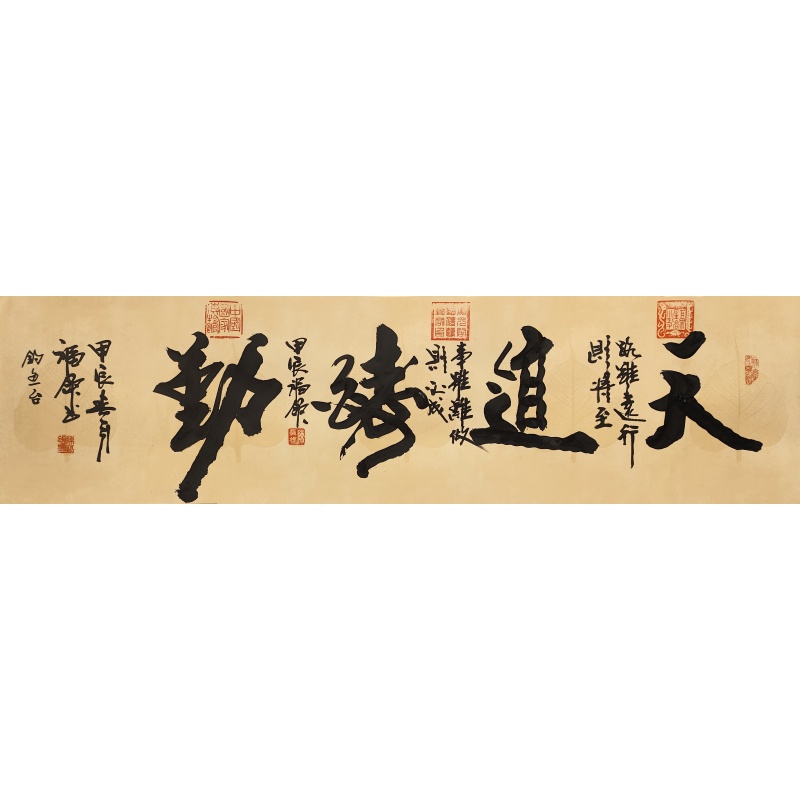 天
路雖遠行
則將至
道
事雖難做
則必成
酬
甲辰福康
勤
甲辰春月
福康书
钓鱼台